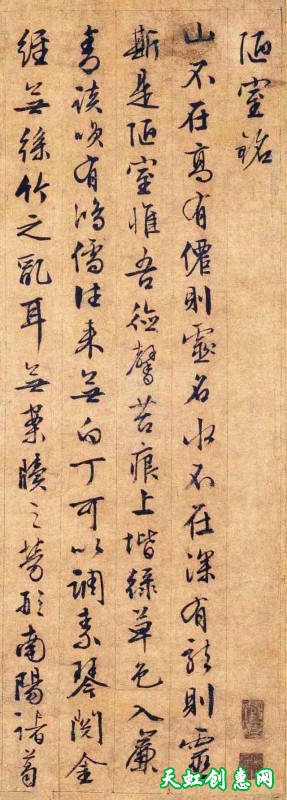 陋室銘
山不在高有僊則靈名水不在深有龍則靈
斯是陋室惟吾德馨苔痕上堦綠草色入簾
青談咲有鴻儒往来無白丁可以調素琴閱金
經無絲竹之亂耳無案牘之勞形南陽諸葛
天虹创意网